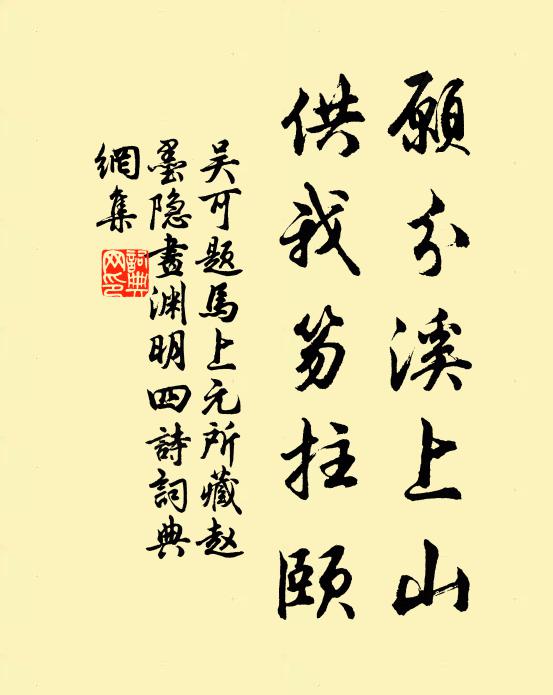 願分溪上山
供我笏拄頤
吴可題馬上元所藏赵
墨隐畫渊明四詩詞典
網集
詞典
网印